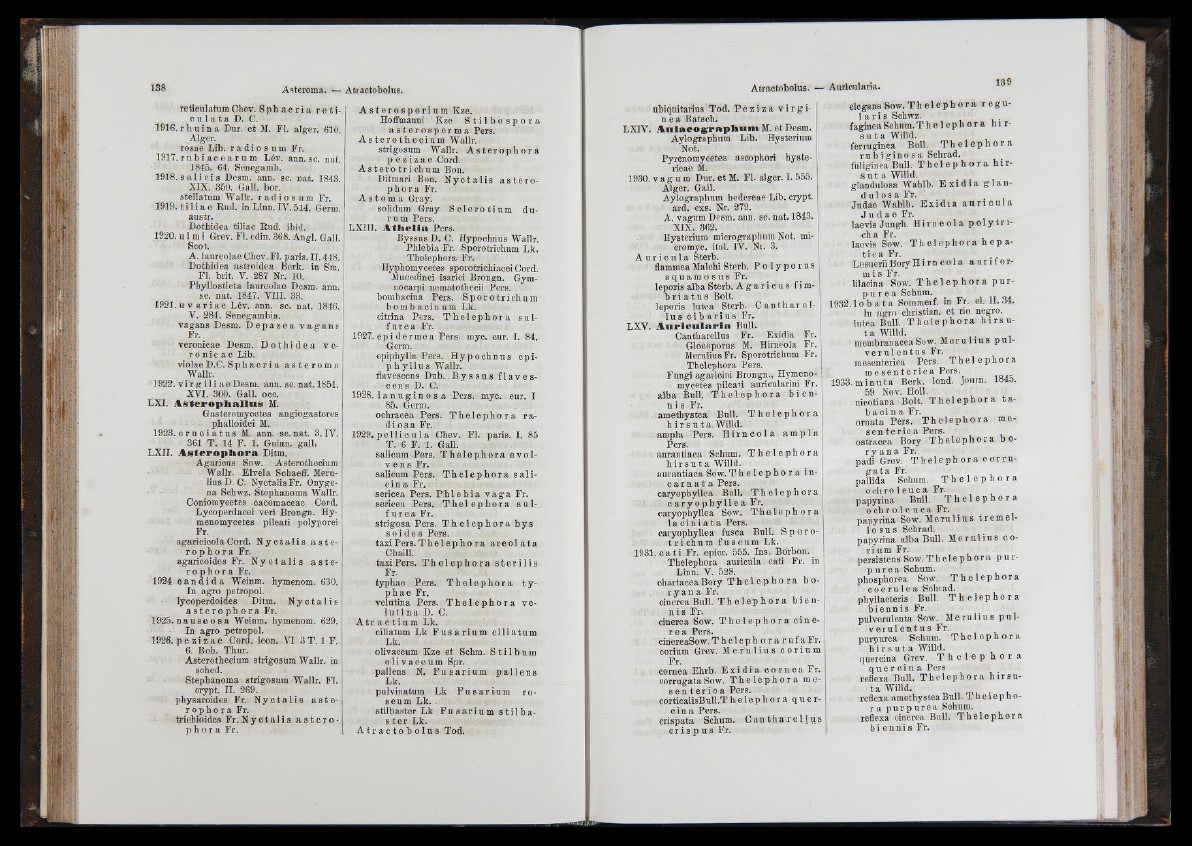 138
Asteroma. — Atractobolus.
reticulatum Chev. Sphaeria reti-
culata D. C.
1916. rhuina Dur. et M. Fl. alger. 610.
Alger.
rosae Lib. radiosum Fr.
1917. rubiacearum Lév. ann. sc. nat.
1845. 64. Senegamb.
1918. salicis Desm. ann. sc. nat. 1843.
XIX. 359. Gall. bor.
stellatum Wallr. radiosum Fr.
1919. tiliae Rud. in Linn. IV. 514. Germ.
austr.
Dothidea tiliae Rud. ibid.
1920. ulmi Grev. Fl. edin. 368. Angl. Gall.
Scot.
A. laureolae Chev. Fl. paris. II. 448.
Dothidea astroidea Berk. in Sm.
Fl. brit. V. 287 Nr. 10.
Phyllosticta laureolae Desm. ann.
sc. nat. 1847. VIII. 33.
1921. uvariae Lév. ann. sc. nat. 1846.
V. 284. Senegambia.
vagans Desm. Depazea vagans
Fr.
veronicae Desm. Dothidea ve-
ronicae Lib.
violae D.C. Sphaeria asteroma
Wallr.
1922. virgiliae Desm. ann. sc. nat. 1851.
XVI. 300. Gall. occ.
LXI. Asterophallus M.
Gasteromycetes angiogastores
phalloidei M.
1923. cruciatus M. ann. sc. nat. 3. IV.
361 T. 14 F. 1. Guian. gall.
LXII. Asterophora Ditm.
Agaricus Sow. Asterothecium
Wallr. Elvela Schaeff. Meru-
lius D. C. Nyctalis Fr. Onyge-
na Schwz. Stephanoma Wallr.
Coniomycetes cacomaceae Cord.
Lycoperdacei veri Brongn. Hy-
menomycetes pileati polyporei
Fr.
agaricicola Cord. Nyctalis aste-
rophora Fr.
agaricoides Fr. Nyctalis aste-
rophora Fr.
1924 candida Weinm. hymenom. 630.
In agro petropol.
lycoperdoides Ditm. Nyctalis
asterophora Fr.
1925. nauseosa Weinm. hymenom. 629.
In agro petropol.
1926. pezizae Cord. icon. VI 3 T. 1 F.
6. Boh. Thur.
Asterothecium strigosum Wallr. in
sched.
Stephanoma strigosum Wallr. Fl.
crypt. II. 269.
physaroides Fr. Nyctalis aste-
rophora Fr.
trichioides Fr. Nyctalis astero-
phora Fr.
Asterosporium Kze.
Hoffmanni Kze Stilbospora
asterosperma Pers.
Asterothecium Wallr.
strigosum Wallr. Asterophora
pezizae Cord.
Asterotrichum Bon.
Ditmari Bon. Nyctalis astero-
phora Fr.
Astoma Gray.
solidum Gray Sclerotium du-
rum Pers.
LXIII. Athelia Pers.
Byssus D. C. Hypochnus Wallr.
Phlebia Fr. Sporotrichum Lk.
Thelephora Fr.
Hyphomycetes sporotrichiacei Cord.
Mucedinei isariei Brongn. Gym-
nocarpi nematothecii Pers.
bombacina Pers. Sporotrichum
bombacinum Lk.
citrina Pers. Thelephora sul-
furea Fr.
1927. epidermea Pers. myc. eur. I. 84.
Germ.
epiphylla Pers. Hypochnus epi-
phyllus Wallr.
flavescens Dub. Byssus flaves-
cens D. C.
1928. lanuginosa Pers. myc. eur. I
85. Germ.
ochracea Pers. Thelephora ra-
diosa Fr.
1929. pellicula Chev. Fl. paris. I. 85
T. 6 F. 1. Gall.
salicum Pers. Thelephora evol-
vens Fr.
salicum Pers. Thelephora sali-
cina Fr.
sericea Pers. Phlebia vaga Fr.
sericea Pers. Thelephora sul-
furea Fr.
strigosa Pers. Thelephora bys
soides Pers.
taxi Pers. Thelephora areolata
Chaill.
taxi Pers. Thelephora sterilis
Fr.
typhae Pers. Thelephora ty-
phae Fr.
velutina Pers. Thelephora ve-
lutina D. C.
Atractium Lk.
ciliatum Lk Fusarium ciliatum
Lk.
olivaceum Kze et Schm. Stilbum
olivaceum Spr.
pallens N. Fusarium pallens
Lk.
pulvinatum Lk Fusarium ro-
seum Lk.
stilbaster Lk Fusarium stilba-
ster Lk.
Atractobolus Tod.
Atractobolus. — Auricularia.
139
ubiquitarius Tod. Peziza virgi-
nea Batsch.
LXIV. Aulacographum M. et Desm.
Aylographum Lib. Hysterium
Not.
Pyrenomycetes ascophori hyste-
rieae M.
1930. vagum Dur. et M. Fl. alger. I. 555.
Alger. Gall.
Aylographum hedereae Lib. crypt.
ard. exs. Nr. 272.
A. vagum Desm. ann. sc. nat. 1843.
XIX. 362.
Hysterium micrographum Not. mi-
cromyc. ital. IV. Nr. 3.
Auricula Sterb.
flammea Malchi Sterb. Polyporus
squamosus Fr.
leporis alba Sterb. Agaricus fim-
briatus Bolt.
leporis lutea Sterb. Cantharel-
lus cibarius Fr.
LXV. Auricularia Bull.
Cantharellus Fr. Exidia Fr.
Gloeoporus M. Hirneola Fr.
Merulius Fr. Sporotrichum Fr.
Thelephora Pers.
Fungi agaricini Brongn., Hymeno-
mycetes pileati auricularini Fr.
alba Bull. Thelephora bien-
nis Fr.
amethystea Bull. Thelephora
hirsuta Willd.
ampla Pers. Hirneola ampla
Pers.
aurantiaca Schum. Thelephora
hirsuta Willd.
aurantiaca Sow. Thelephora in-
carnata Pers.
caryophyllea Bull. Thelephora
caryophyllea Fr.
caryophyllea Sow. Thelephora
laciniata Pers.
caryophyllea fusca Bull. Sporo-
trichum fuscum Lk.
1931. cati Fr. epicr. 555. Ins. Borbon.
Thelephora auricula cati Fr. in
Linn. V. 528.
chartacea Bory Thelephora bo-
ryana Fr.
cinerea Bull. Thelephora bien-
nis Fr.
cinerea Sow. Thelephora cine-
rea Pers.
cinerea Sow. Thelephora rufa Fr.
corium Grev. Merulius corium
Fr.
cornea Ehrb. Exidia cornea Fr.
corrugata Sow. Thelephora me-
senterica Pers.
corticalis Bull. Thelephora quer-
cina Pers.
crispata Schum. Cantharellus
crispus Fr.
elegans Sow. Thelephora regu-
laris Schwz.
faginea Schum. Thelephora hir-
suta Willd.
ferruginea Bull. Thelephora
rubiginosa Schrad.
fuliginea Bull. Thelephora hir-
suta Willd.
glandulosa Wahlb. Exidia glan-
dulosa Fr.
Judae Wahlb. Exidia auricula
Judae Fr.
laevis Jungh. Hirneola polytri-
cha Fr.
laevis Sow. Thelephora hepa-
tica Fr.
Lesuerii Bory Hirneola aurifor-
mis Fr.
lilacina Sow. Thelephora pur-
purea Schum.
1932. lobata Sommerf. in Fr. el. II. 34.
In agro christian. et rio negro.
lutea Bull. Thelephora hirsu-
ta Willd.
membranacea Sow. Merulius pul-
verulentus Fr.
mesenterica Pers. Thelephora
mesenterica Pers.
1933. minuta Berk. lond. journ. 1845.
59 Nov. Holl.
nicotiana Bolt. Thelephora ta-
bacina Fr.
ornata Pers. Thelephora me-
senterica Pers.
ostracea Bory Thelephora bo-
ryana Fr.
padi Grev. Thelephora corru-
gata Fr.
pallida Schum. Thelephora
ochroleuca Fr.
papyrina Bull. Thelephora
ochroleuca Fr.
papyrina Sow. Merulius tremel-
losus Schrad.
papyrina alba Bull. Merulius co-
rium Fr.
persistens Sow. Thelephora pur-
purea Schum.
phosphorea Sow. Thelephora
coerulea Schrad.
phyllacteris Bull. Thelephora
biennis Fr.
pulverulenta Sow. Merulius pul-
verulentus Fr.
purpurea Schum. Thelephora
hirsuta Willd.
quercina Grev. Thelephora
quercina Pers
reflexa Bull. Thelephora hirsu-
ta Willd.
reflexa amethystea Bull. Thelepho-
ra purpurea Schum.
reflexa cinerea Bull. Thelephora
biennis Fr.